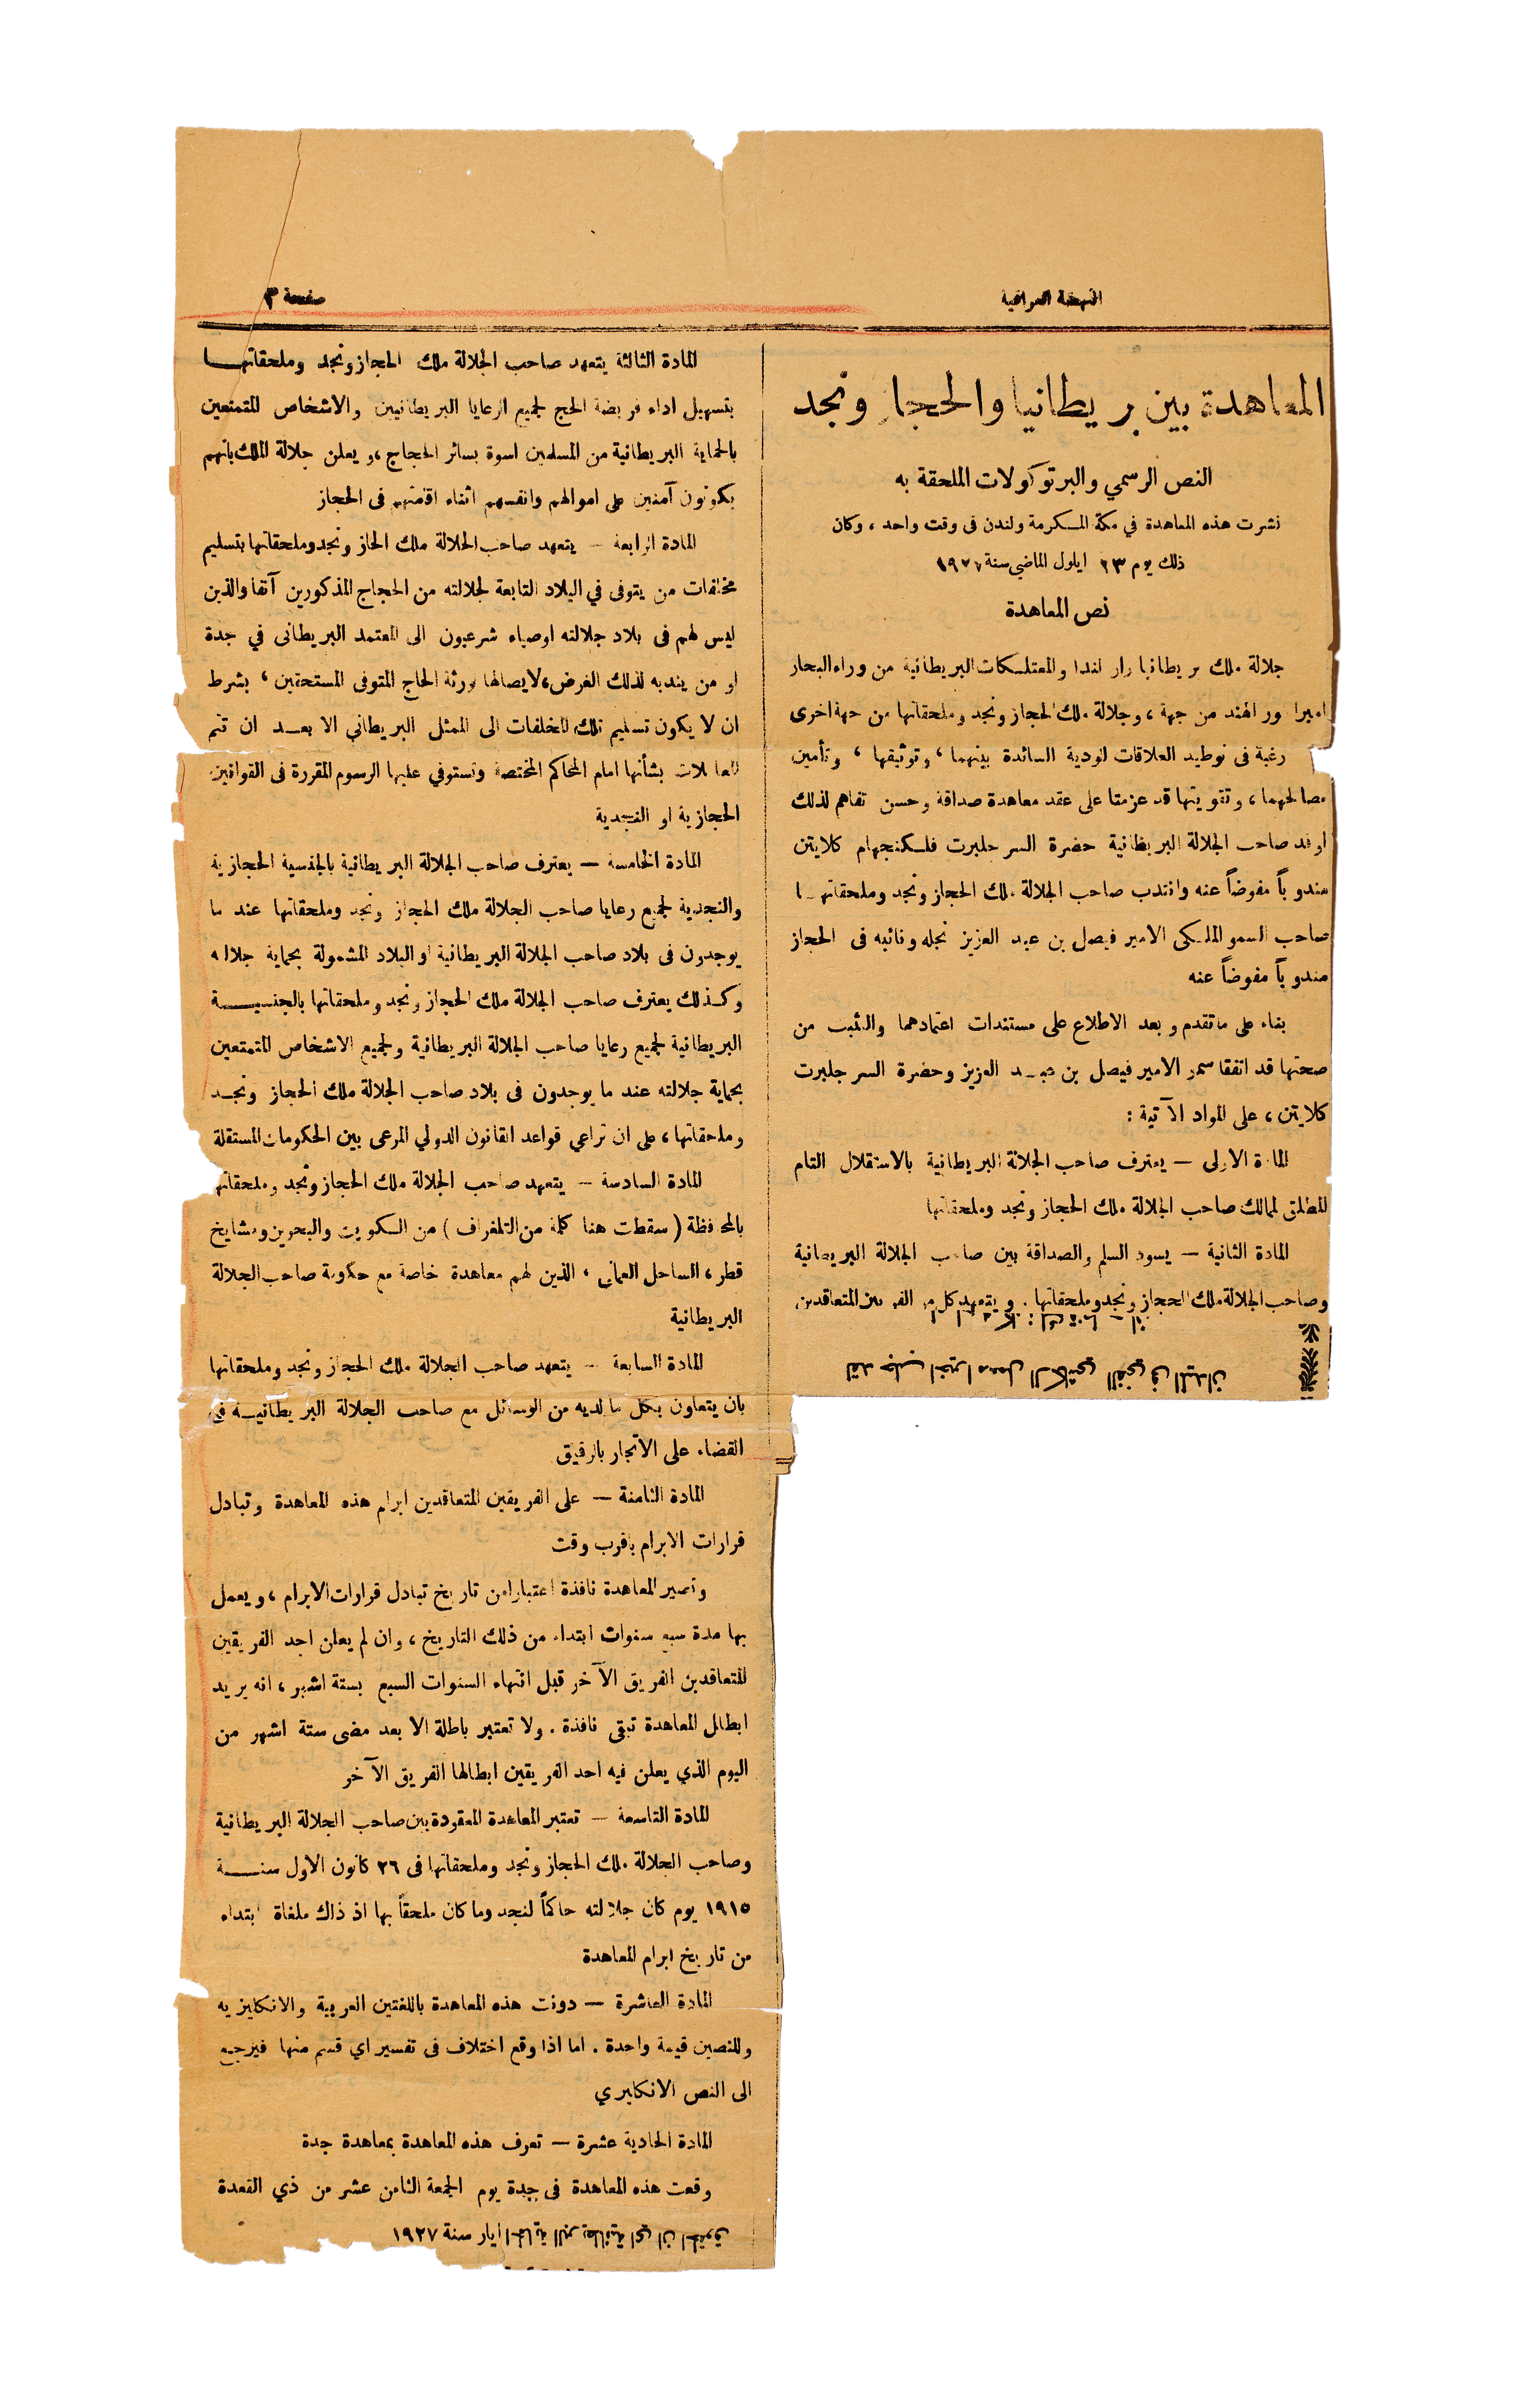 النهضة العراقية
صفحة ٣
المعاهدة بين بريطانيا والحجاز ونجد
النص الرسمي والبرتوكولات الملحقة به
نشرت هذه المعاهدة في مكة المكرمة ولندن فى وقت واحد ، وكان
ذلك يوم ٢٣ ايلول الماضي سنة ١٩٢٧
نص المعاهدة
جلالة ملك بريطانيا وارلندا والممتلكات البريطانية من وراء البحار
امبراطور الهند من جهة ، وجلالة ملك الحجاز ونجد وملحقاتها من جهة اخرى
رغبة فى توطيد العلاقات الودية السائدة بينهما ، وتوثيقها ، وتأمين
مصالحهما ، وتقويتها قد عزمتا على عقد معاهدة صداقة وحسن تفاهم لذلك
اوفد صاحب الجلالة البريطانية حضرة السر جلبرت فلكنجهام كلايتن
مندوباً مفوضاً عنه وانتدب صاحب الجلالة ملك الحجاز ونجد وملحقاتهـا
صاحب السمو الملكى الامير فيصل بن عبد العزيز نجله ونائبه فى الحجاز
مندوباً مفوضاً عنه
بناء على ماتقدم وبعد الاطلاع على مستندات اعتمادهما والتثبت من
صحتها قد اتفقا سمو الامير فيصل بن عبـد العزيز وحضرة السر جلبرت
كلايتن ، على المواد الآتية :
المادة الاولى — يعترف صاحب الجلالة البريطانية بالاستقلال التام
المطلق لممالك صاحب الجلالة ملك الحجاز ونجد وملحقاتها
المادة الثانية — يسود السلم والصداقة بين صاحب الجلالة البريطانية
وصاحب الجلالة ملك الحجاز ونجد وملحقاتها . ويتعهد كل من الفريقين المتعاقدين
المادة الثالثة يتعهد صاحب الجلالة ملك الحجاز ونجد وملحقاتهـا
بتسهيل اداء فريضة الحج لجميع الرعايا البريطانيين والاشخاص المتمتعين
بالحماية البريطانية من المسلمين اسوة بسائر الحجاج ، ويعلن جلالة الملك بانهم
يكونون آمنين على اموالهم وانفسهم اثناء اقامتهم فى الحجاز
المادة الرابعة — يتعهد صاحب الجلالة ملك الحاز ونجد وملحقاتها بتسليم
مخلفات من يتوفى في البلاد التابعة لجلالته من الحجاج المذكورين آنفا والذين
ليس لهم فى بلاد جلالته اوصياء شرعيون الى المعتمد البريطانى في جدة
او من يندبه لذلك الغرض ، لايصالها لورثة الحاج المتوفى المستحقين ، بشرط
ان لا يكون تسليم تلك المخلفات الى الممثل البريطاني الا بعـد ان تتم
المعاملات بشأنها امام المحاكم المختصة وتستوفي عليها الرسوم المقررة فى القوانين
الحجازية او النجدية
المادة الخامسة — يعترف صاحب الجلالة البريطانية بالجنسية الحجازية
والنجدية لجميع رعايا صاحب الجلالة ملك الحجاز ونجد وملحقاتها عند ما
يوجدون فى بلاد صاحب الجلالة البريطانية او البلاد المشمولة بحماية جلالته
وكـذلك يعترف صاحب الجلالة ملك الحجاز ونجد وملحقاتها بالجنسيــة
البريطانية لجميع رعايا صاحب الجلالة البريطانية ولجميع الاشخاص المتمتعين
بحماية جلالته عند ما يوجدون فى بلاد صاحب الجلالة ملك الحجاز ونجـد
وملحقاتها ، على ان تراعي قواعد القانون الدولي المرعى بين الحكومات المستقلة
المادة السادسة — يتعهد صاحب الجلالة ملك الحجاز ونجد وملحقاتها
بالمحافظة ( سقطت هنا كلمة من التلغراف ) من الكويت والبحرين ومشايخ
قطر ، الساحل العماني ، الذين لهم معاهدة خاصة مع حكومة صاحب الجلالة
البريطانية
المادة السابعة — يتعهد صاحب الجلالة ملك الحجاز ونجد وملحقاتها
بان يتعاون بكل ما لديه من الوسائل مع صاحب الجلالة البريطانيـة في
القضاء على الاتجار بالرقيق
المادة الثامنة — على الفريقين المتعاقدين ابرام هذه المعاهدة وتبادل
قرارات الابرام باقرب وقت
وتصير المعاهدة نافذة اعتبارا من تاريخ تبادل قرارات الابرام ، ويعمل
بها مدة سبع سنوات ابتداء من ذلك التاريخ ، وان لم يعلن احد الفريقين
المتعاقدين الفريق الآخر قبل انتهاء السنوات السبع بستة اشهر ، انه يريد
ابطال المعاهدة تبقى نافذة . ولا تعتبر باطلة الا بعد مضى ستة اشهر من
اليوم الذي يعلن فيه احد الفريقين ابطالها الفريق الآخر
المادة التاسعة — تعتبر المعاهدة المعقودة بين صاحب الجلالة البريطانية
وصاحب الجلالة ملك الحجاز ونجد وملحقاتها فى ٢٦ كانون الاول سنــة
١٩١٥ يوم كان جلالته حاكماً لنجد وما كان ملحقاً بها اذ ذاك ملغاة ابتداء
من تاريخ ابرام المعاهدة
المادة العاشرة — دونت هذه المعاهدة باللغتين العربية والانكليزيه
وللنصين قيمة واحدة . اما اذا وقع اختلاف فى تفسير اي قسم منها فيرجع
الى النص الانكليري
المادة الحادية عشرة — تعرف هذه المعاهدة بمعاهدة جدة
وقعت هذه المعاهدة فى جدة يوم الجمعة الثامن عشر من ذي القعدة
ايار سنة ١٩٢٧